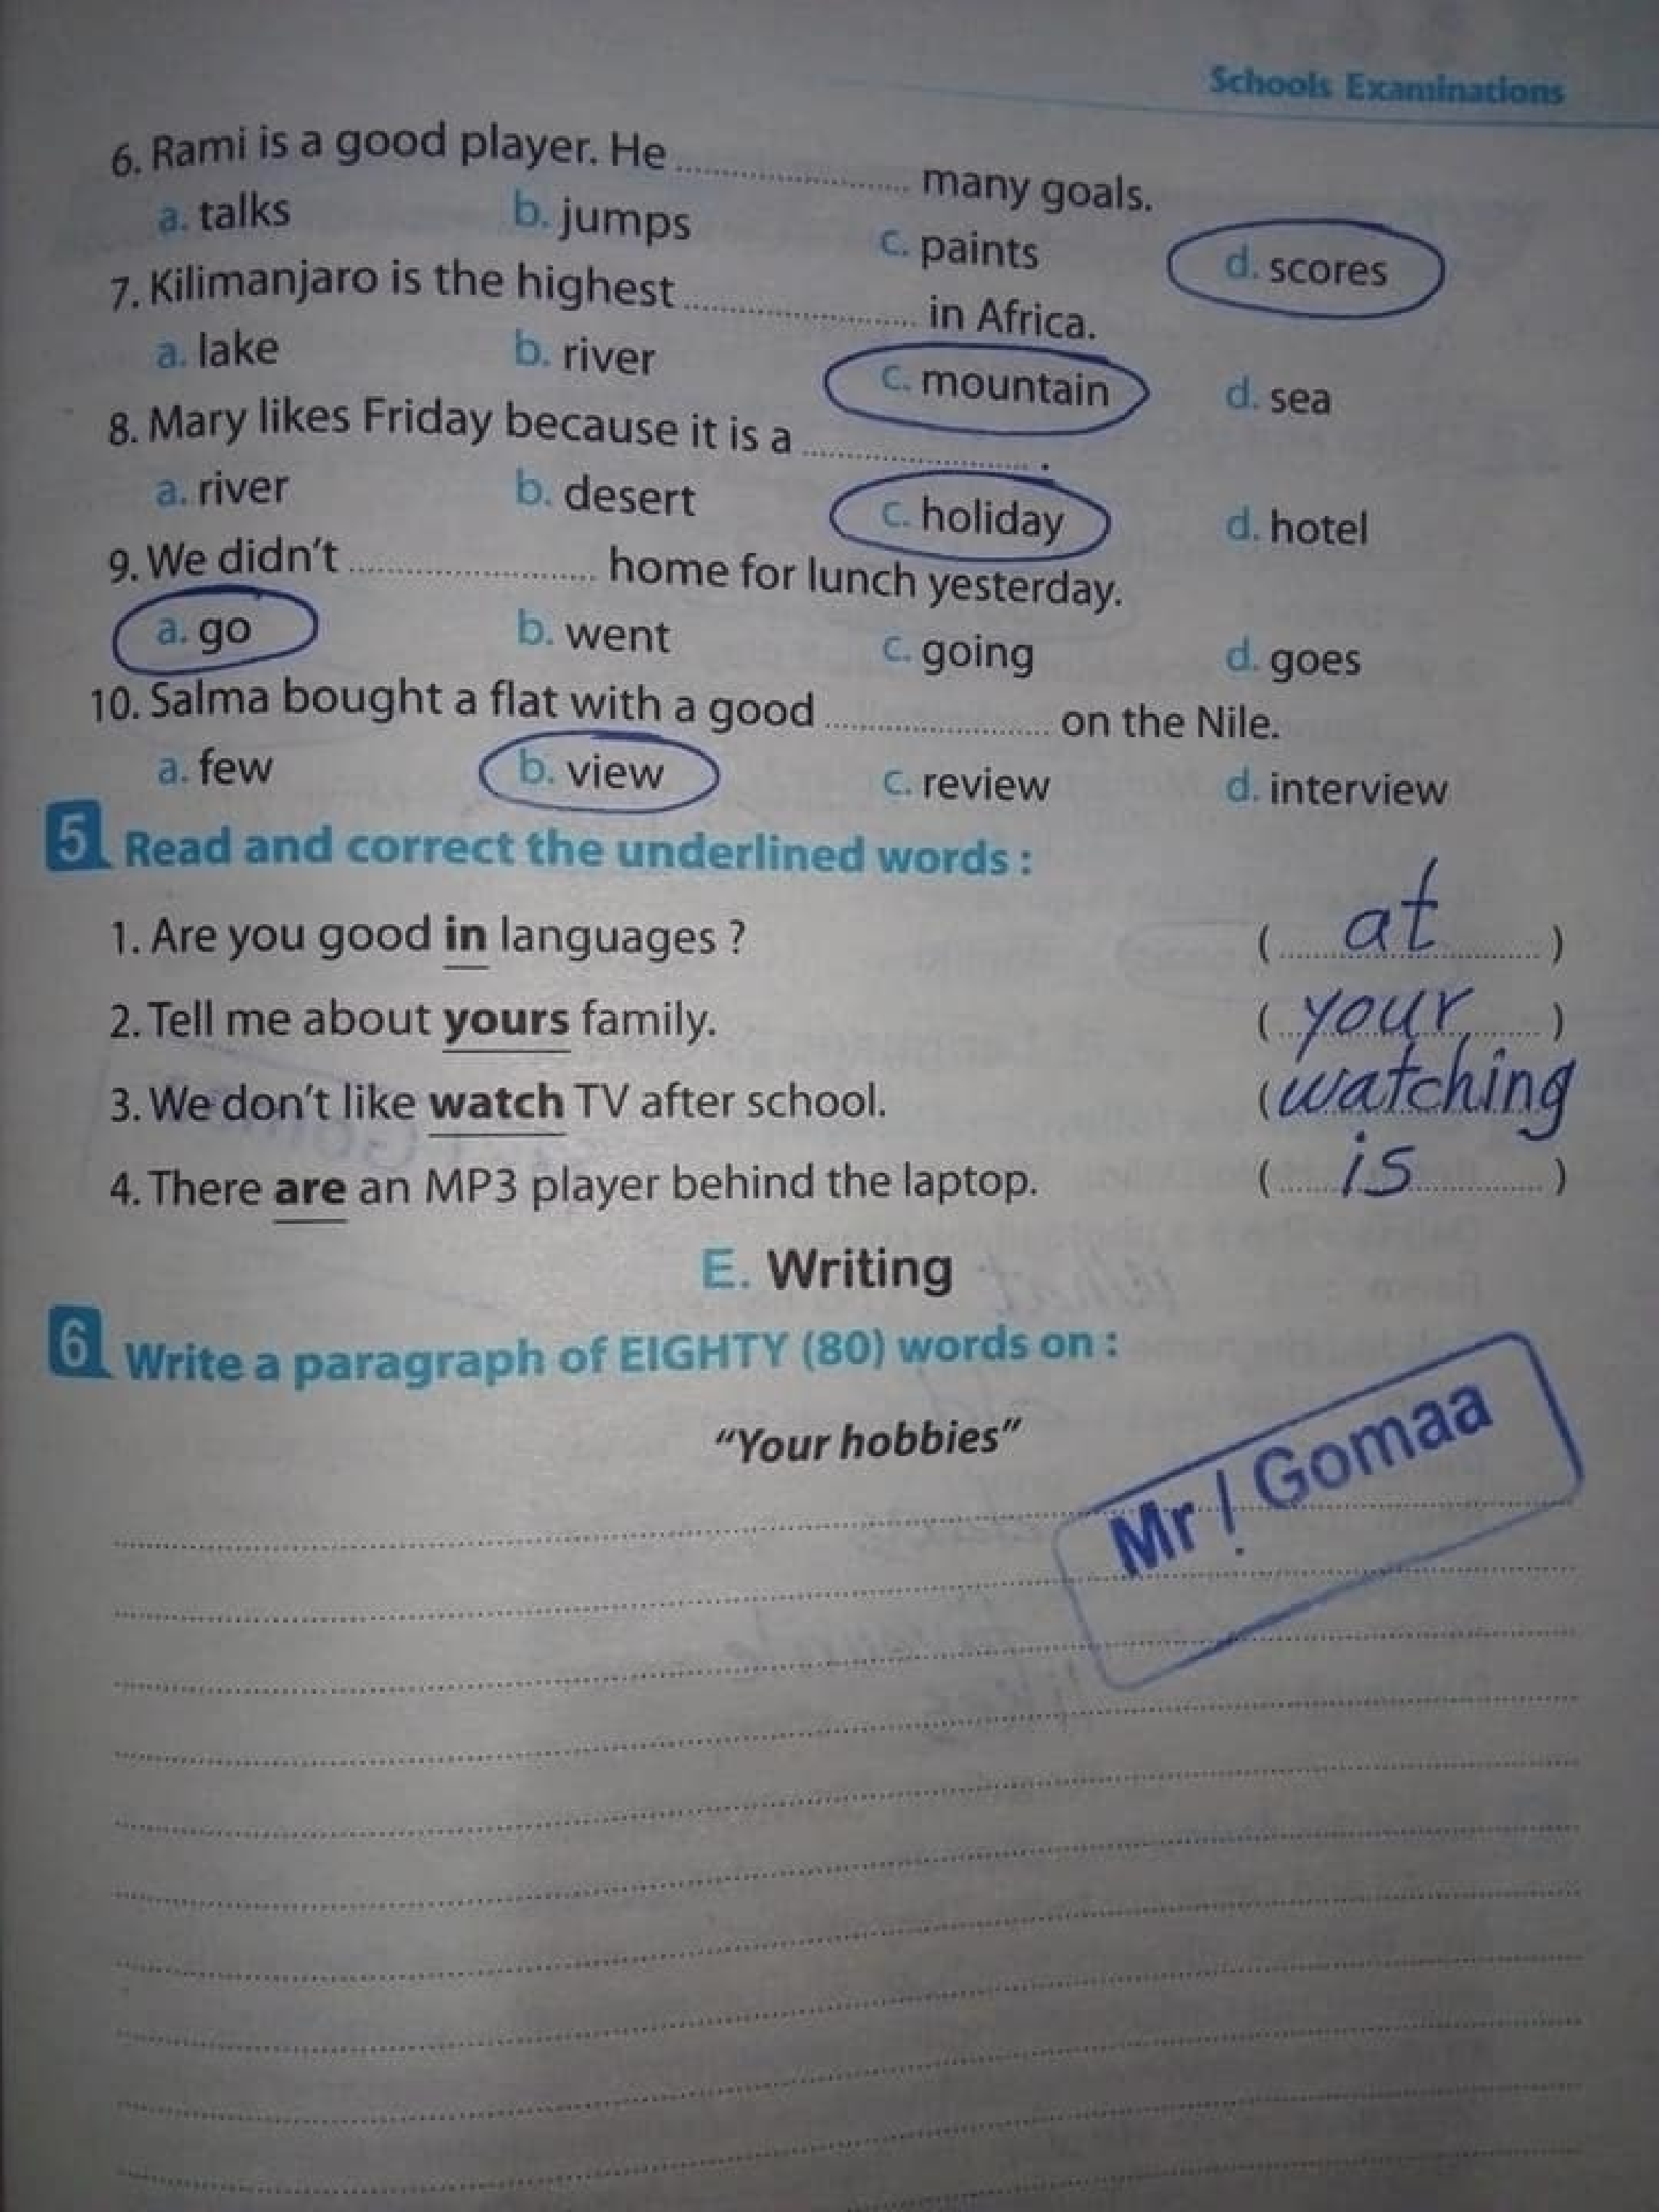 Schools Examinations
6. Rami is a good player. He .................... many goals.
a. talks b. jumps c. paints d. scores
7. Kilimanjaro is the highest .................... in Africa.
a. lake b. river c. mountain d. sea
8. Mary likes Friday because it is a .................... .
a. river b. desert c. holiday d. hotel
9. We didn't .................... home for lunch yesterday.
a. go b. went c. going d. goes
10. Salma bought a flat with a good .................... on the Nile.
a. few b. view c. review d. interview
5 Read and correct the underlined words :
1. Are you good in languages ? (.... at ....)
2. Tell me about yours family. (.... your ....)
3. We don't like watch TV after school. ( watching
4. There are an MP3 player behind the laptop. (.... is ....)
E. Writing
6 Write a paragraph of EIGHTY (80) words on :
"Your hobbies"
Mr / Gomaa